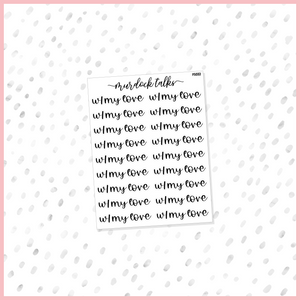 murdock talks
w/my love w/my love
w/my love w/my love
w/my love w/my love
w/my love w/my love
w/my love w/my love
w/my love w/my love
w/my love w/my love
w/my love w/my love
w/my love w/my love